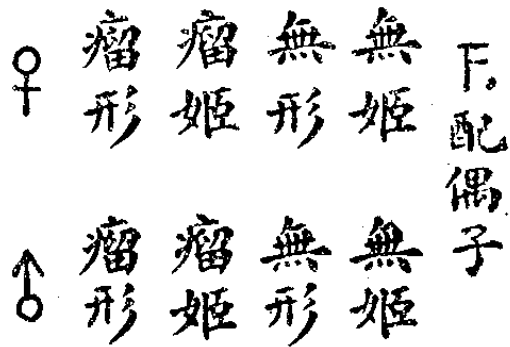 F。配偶子
無姫
無形
瘤姫
瘤形
♀
無姫
無形
瘤姫
瘤形
♂